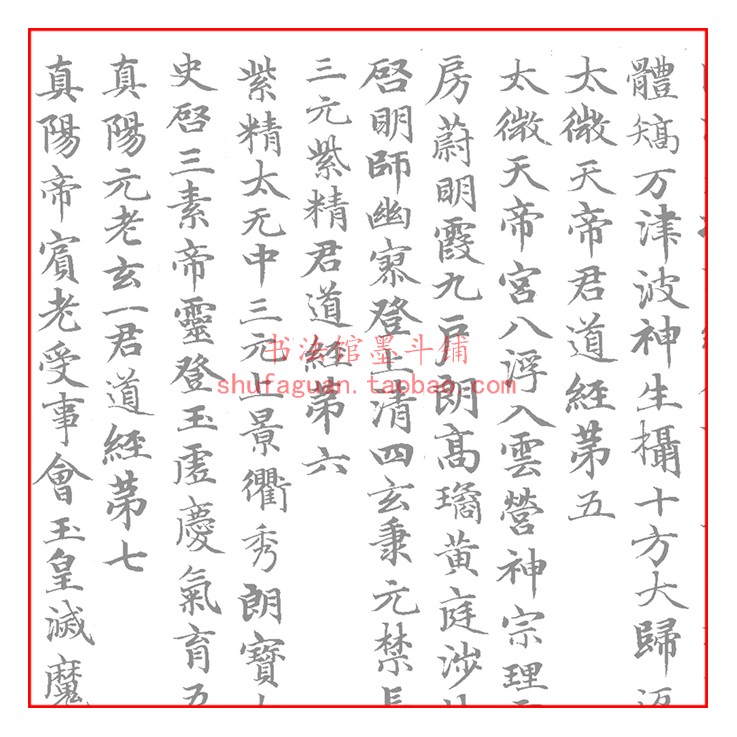 體獢万津波神生攝十方大歸
太微天帝君道經苐五
太微天帝宮八浮入雲營神宗理
房蔚明霞九戸朗髙璚黄庭涉
啓明師幽寥登上清四玄秉元禁
三元紫精君道經苐六
紫精太无中三元上景衢秀朗寶
史啓三素帝靈登玉虗慶氣育五
真陽元老玄一君道經苐七
真陽帝賓老受事會玉皇滅魔
书法馆墨斗铺
shufaguan.taobao.com